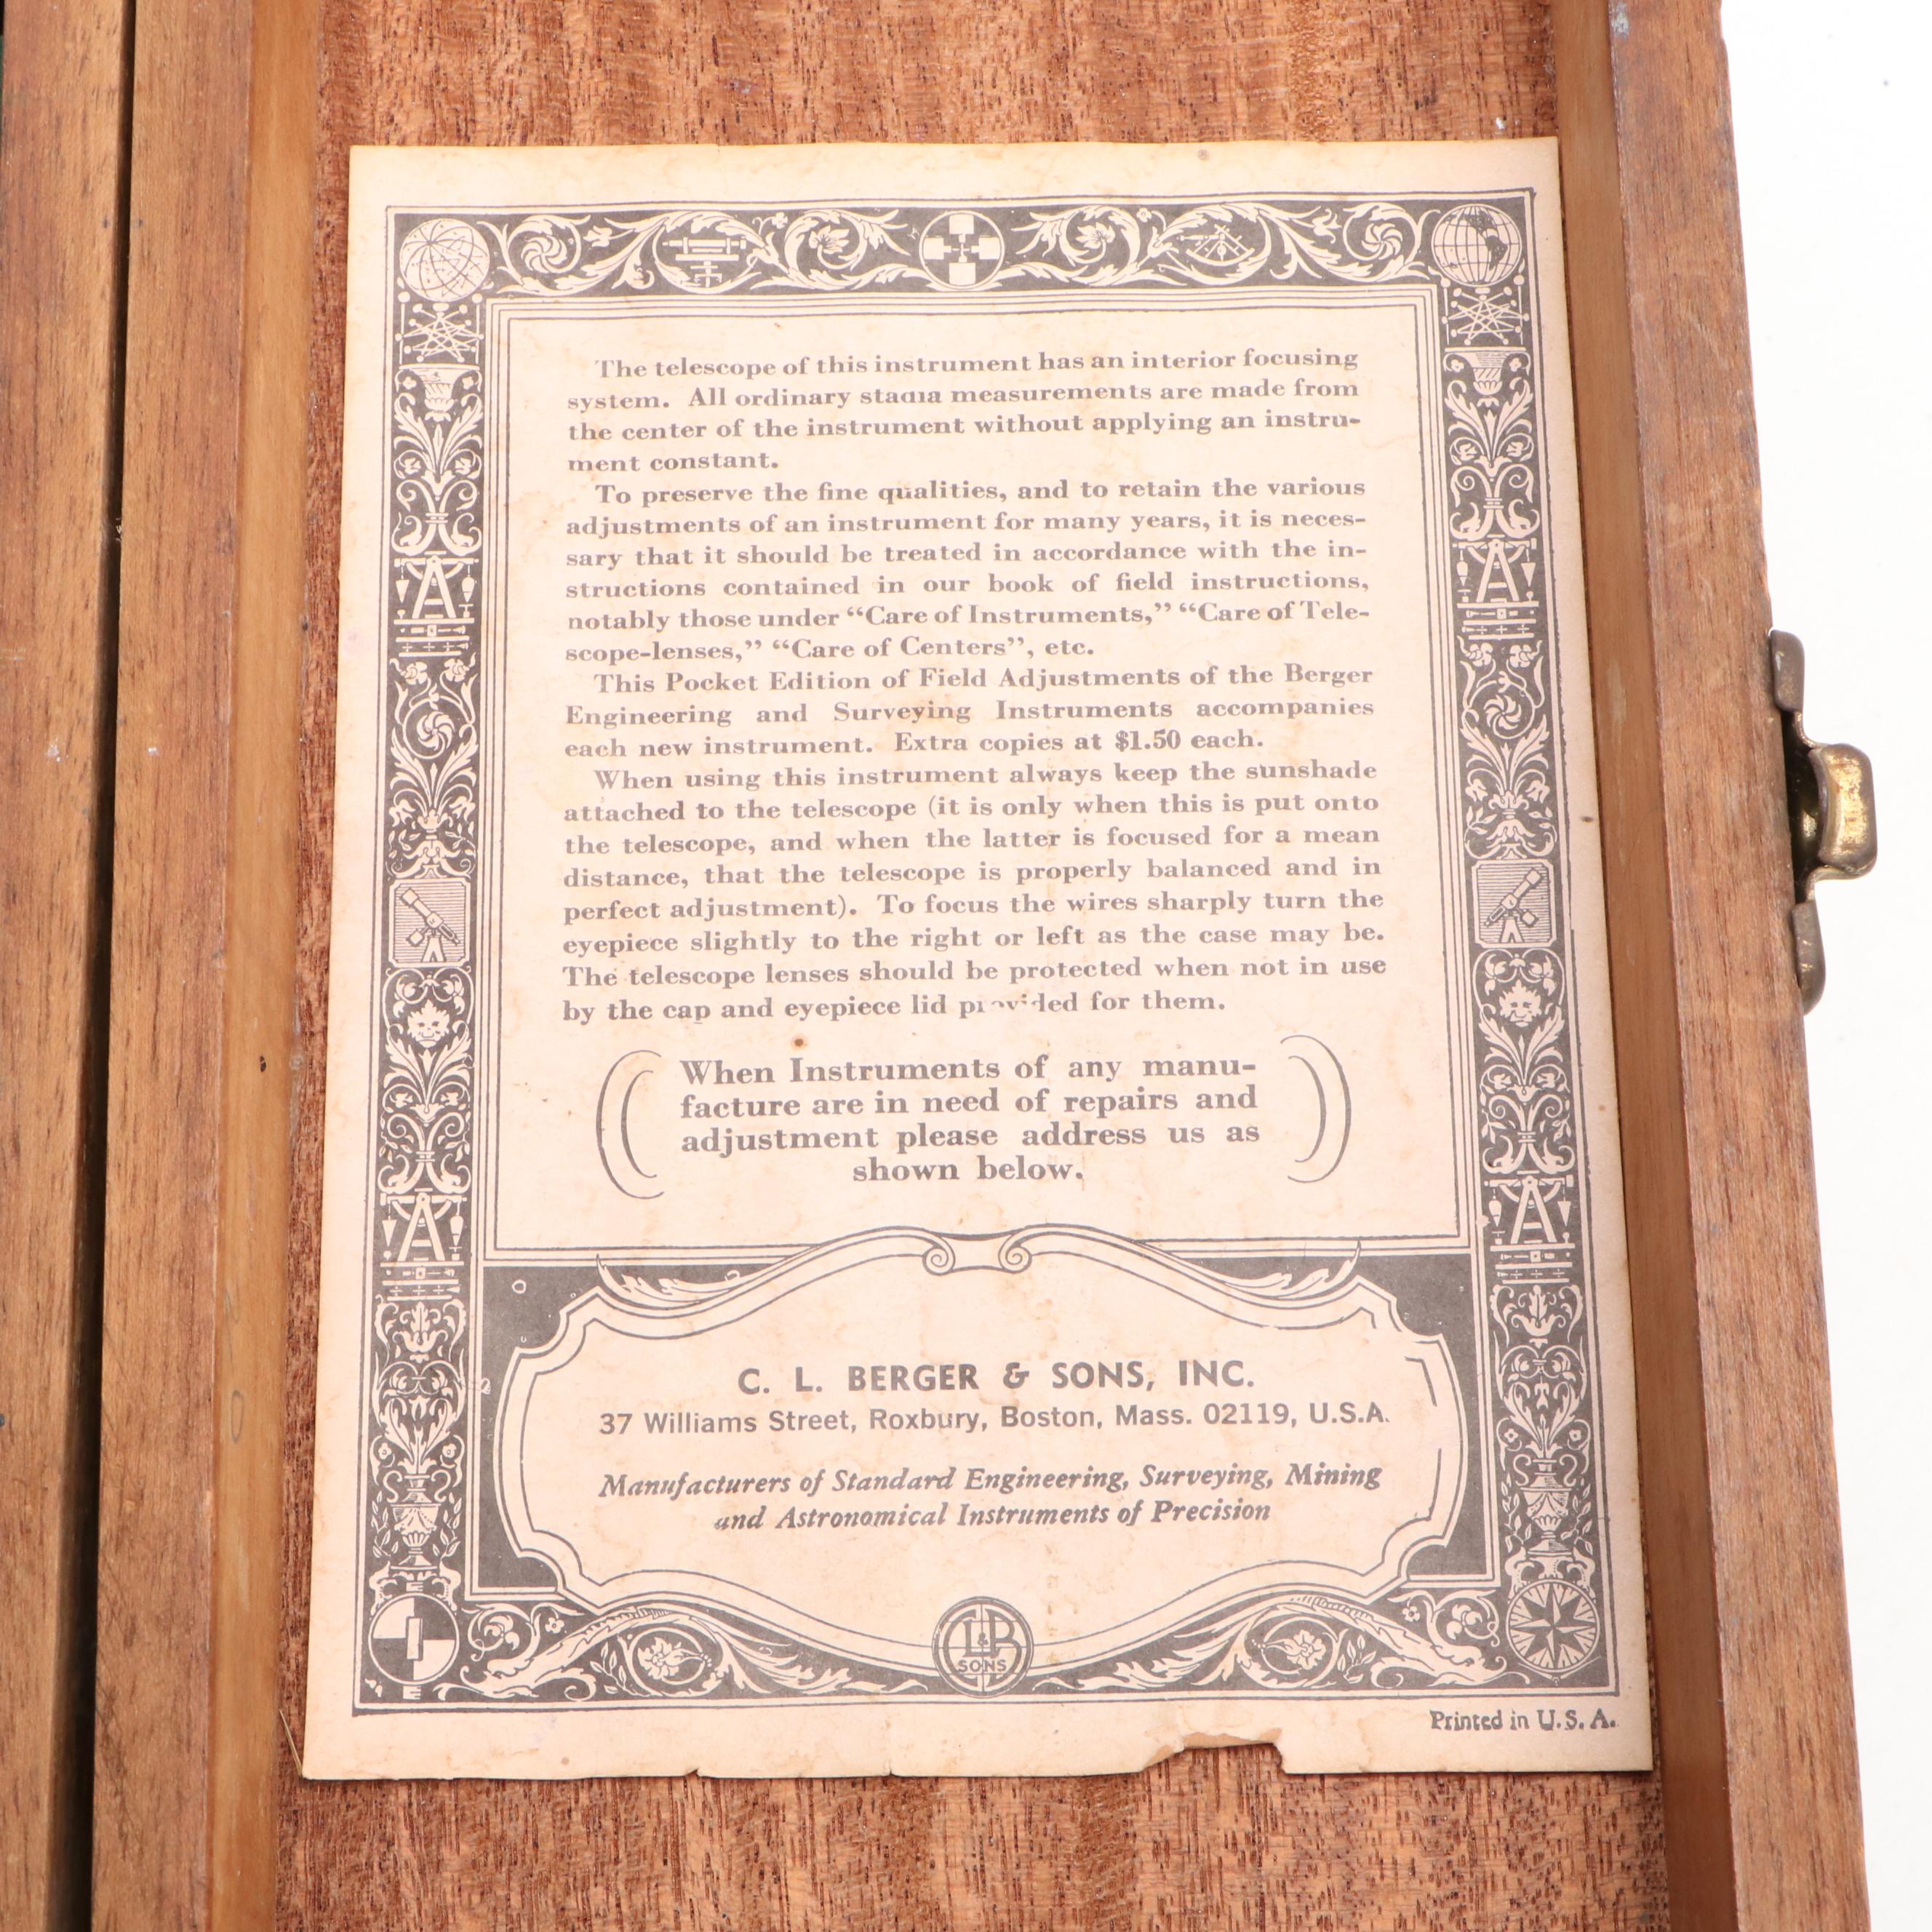 The telescope of this instrument has an interior focusing
system. All ordinary stadia measurements are made from
the center of the instrument without applying an instru-
ment constant.
To preserve the fine qualities, and to retain the various
adjustments of an instrument for many years, it is neces-
sary that it should be treated in accordance with the in-
structions contained in our book of field instructions,
notably those under “Care of Instruments,” “Care of Tele-
scope-lenses,” “Care of Centers”, etc.
This Pocket Edition of Field Adjustments of the Berger
Engineering and Surveying Instruments accompanies
each new instrument. Extra copies at $1.50 each.
When using this instrument always keep the sunshade
attached to the telescope (it is only when this is put onto
the telescope, and when the latter is focused for a mean
distance, that the telescope is properly balanced and in
perfect adjustment). To focus the wires sharply turn the
eyepiece slightly to the right or left as the case may be.
The telescope lenses should be protected when not in use
by the cap and eyepiece lid provided for them.
When Instruments of any manu-
facture are in need of repairs and
adjustment please address us as
shown below.
C. L. BERGER & SONS, INC.
37 Williams Street, Roxbury, Boston, Mass. 02119, U.S.A.
Manufacturers of Standard Engineering, Surveying, Mining
and Astronomical Instruments of Precision
CL&B
SONS
Printed in U.S.A.